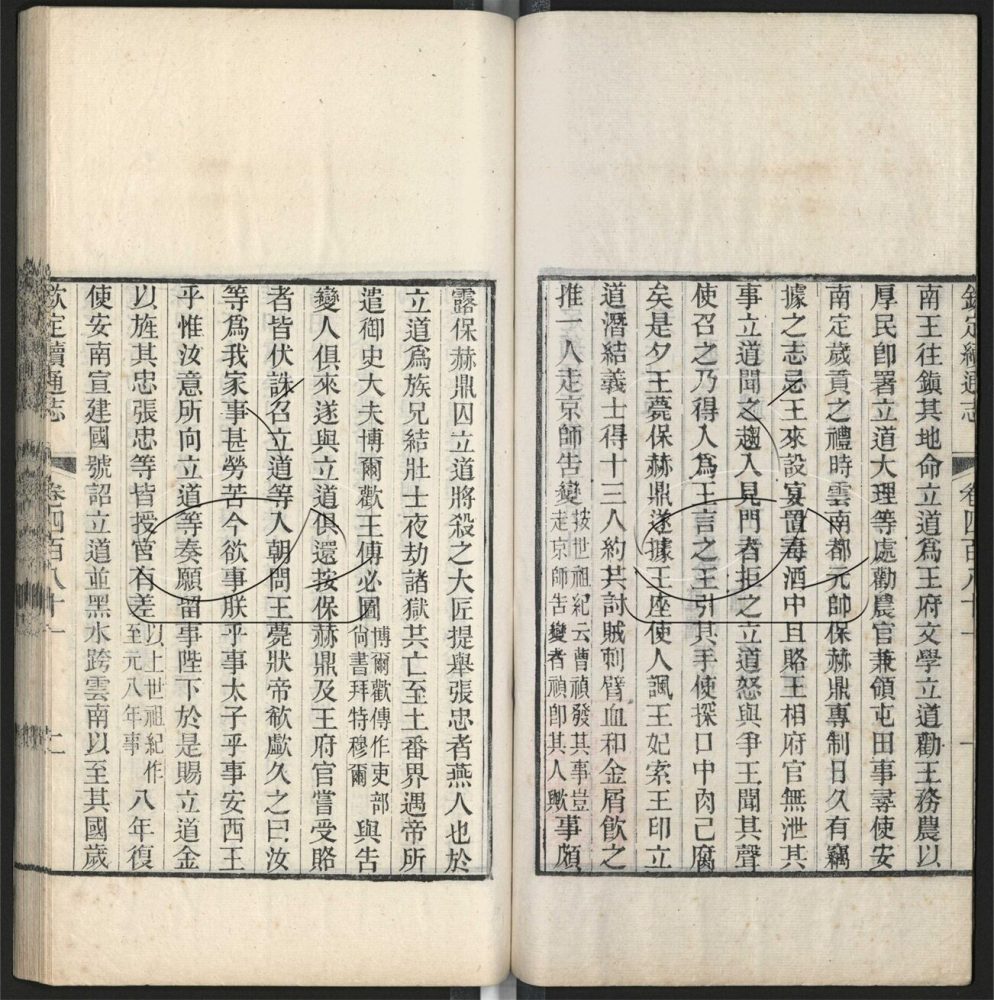 欽定續通志
卷四百八十一
南王往鎭其地命立道爲王府文學立道勸王務農以
厚民卽署立道大理等處勸農官兼領屯田事尋使安
南定歲貢之禮時雲南都元帥保赫鼎專制日久有竊
據之志忌王來設宴置毒酒中且賂王相府官無泄其
事立道聞之趨入見門者拒之立道怒與爭王聞其聲
使召之乃得入爲王言之王引其手使探口中肉已腐
矣是夕王薨保赫鼎遂據王座使人諷王妃索王印立
道潛結義士得十三人約共討賊刺臂血和金屑飲之
推一人走京師告變按世祖紀云曹禎發其事豈走京師告變者禎卽其人歟事頗
露保赫鼎囚立道將殺之大匠提舉張忠者燕人也於
立道爲族兄結壯士夜劫諸獄共亡至土番界遇帝所
遣御史大夫博爾歡王傅必圖博爾歡傳作吏部尙書拜特穆爾與告
變人俱來遂與立道俱還按保赫鼎及王府官嘗受賂
者皆伏誅召立道等入朝問王薨狀帝欷歔久之曰汝
等爲我家事甚勞苦今欲事朕乎事太子乎事安西王
乎惟汝意所向立道等奏願留事陛下於是賜立道金
以旌其忠張忠等皆授官有差以上世祖紀作至元八年事八年復
使安南宣建國號詔立道並黑水跨雲南以至其國歲
欽定續通志
卷四百八十一